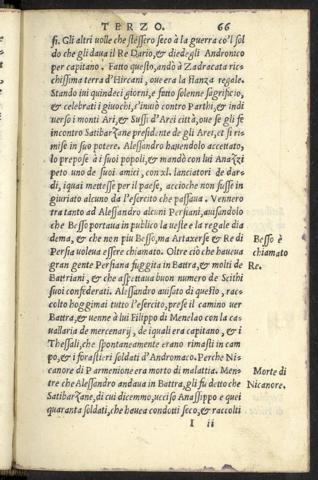 TERZO. 66
si. Gli altri volle che stessero seco à la guerra co'l sol
do che gli daua il Re Dario, & diedegli Andronico
per capitano. Fatto questo, andò à Zadracata ric-
chissima terra d'Hircani, oue era la stanza regale.
Stando iui quindeci giorni, e fatto solenne sagrificio,
& celebrati i giuochi, s'inuiò contro Parthi, & indi
uerso i monti Ari, & Sussi d'Arei città, oue se gli fe
incontro Satibarzane presidente de gli Arei, et si ri-
mise in suo potere. Alessandro hauendolo accettato,
lo prepose à i suoi popoli, & mandò con lui Anazzi
peto uno de suoi amici, con xl. lanciatori de dar-
di, iquai mettesse per il paese, accioche non fusse in
giuriato alcuno da l'esercito che passaua. Vennero
tra tanto ad Alessandro alcuni Persiani, auisandolo
che Besso portaua in publico la ueste e la regale dia
dema, & che non piu Besso, ma Artaxerse & Re di
Persia voleua essere chiamato. Oltre ciò che haueua
gran gente Persiana fuggita in Battra, & molti de
Battriani, & che aspettaua buon numero de Scithi
suoi confederati. Alessandro auisato di questo, rac-
colto hoggimai tutto l'esercito, prese il camino uer
Battra, & uenne à lui Filippo di Menelao con la ca-
uallaria de mercenarij, de iquali era capitano, & i
Thessali, che spontaneamente erano rimasti in cam-
po, & i forastieri soldati d'Andromaco. Perche Ni-
canore di Parmenione era morto di malattia. Men-
tre che Alessandro andaua in Battra, gli fu detto che
Satibarzane, di cui dicemmo, ucciso Anassippo e quei
quaranta soldati, che hauea condotti seco, & raccolti
I ii
Besso è
chiamato
Re.
Morte di
Nicanore.